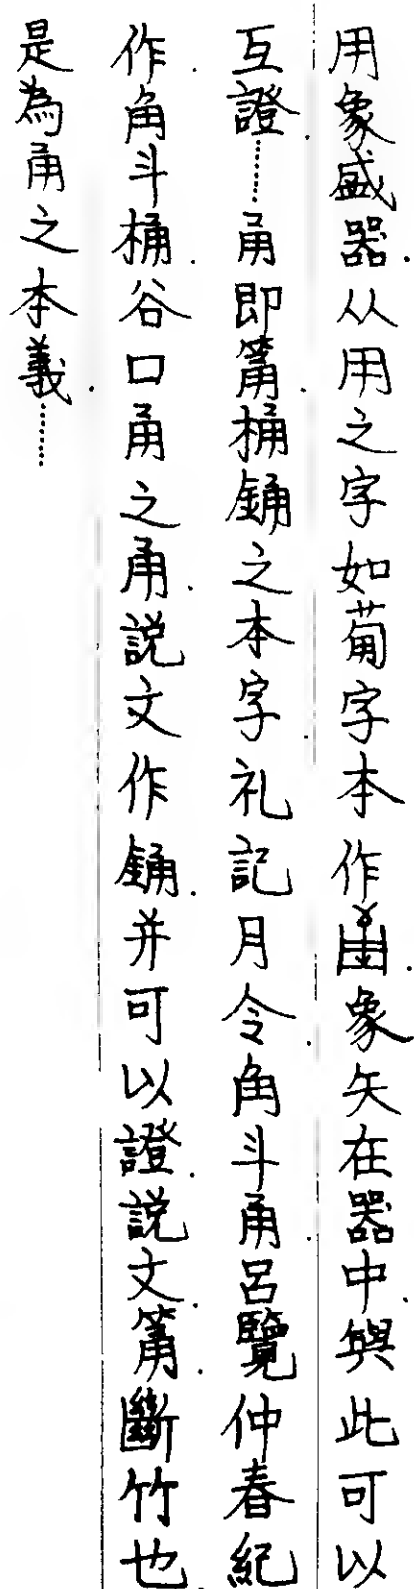 用象盛器从用之字如葡字本作象矢在器中與此可以
互證……甬即筩桶銿之本字礼記月令角斗甬呂覽仲春紀
作角斗桶谷口甬之甬説文作銿并可以證説文筩斷竹也
是為甬之本義……